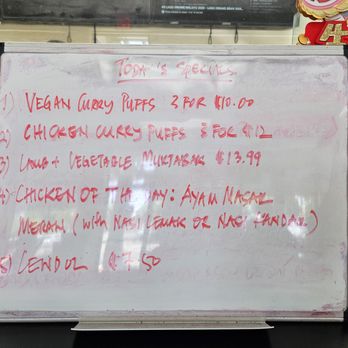 TODAY'S SPECIALS
1) VEGAN CURRY PUFFS 2 FOR $10.00
2) CHICKEN CURRY PUFFS 2 FOR $12
3) LAMB + VEGETABLE MURTABAK $13.99
4) CHICKEN OF THE DAY: AYAM MASAK
MERAH (WITH NASI LEMAK OR NASI KANDAR)
5) CENDOL $7.50